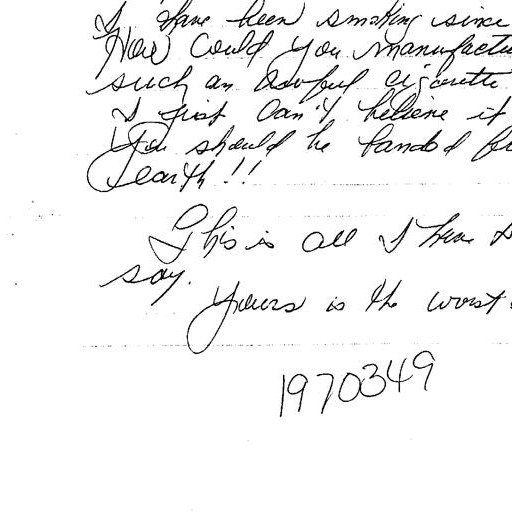 I have been smoking since
How could you manufactu
such an awful cigarette
I just can't believe it
You should be banded fr
earth!!
This is all I have to
say.
Yours is the worst
1970349